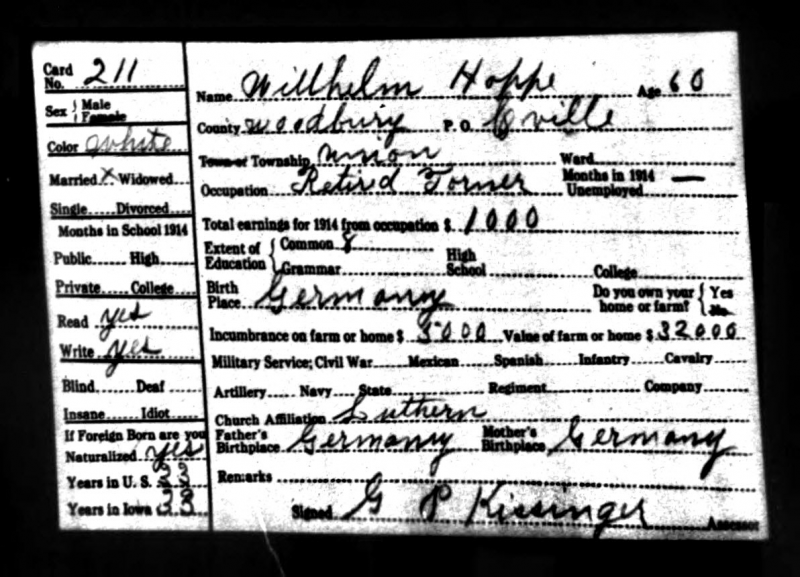 Card No. 211
Sex Male Female
Color White
Married X Widowed
Single Divorced
Months in School 1914
Public High
Private College
Read yes
Write yes
Blind Deaf
Insane Idiot
If Foreign Born are you
Naturalized yes
Years in U. S. 33
Years in Iowa 33
Name Willhelm Hoppe Age 60
County Woodbury P. O. Cville
Town or Township Union Ward
Occupation Retired Former Months in 1914 Unemployed —
Total earnings for 1914 from occupation $ 1000
Extent of Education Common 8 High School College
Grammar
Birth Place Germany Do you own your home or farm? Yes No
Incumbrance on farm or home $ 5000 Value of farm or home $ 32000
Military Service; Civil War Mexican Spanish Infantry Cavalry
Artillery Navy State Regiment Company
Church Affiliation Luthern
Father's Birthplace Germany Mother's Birthplace Germany
Remarks
Signed G P Kissinger Assessor